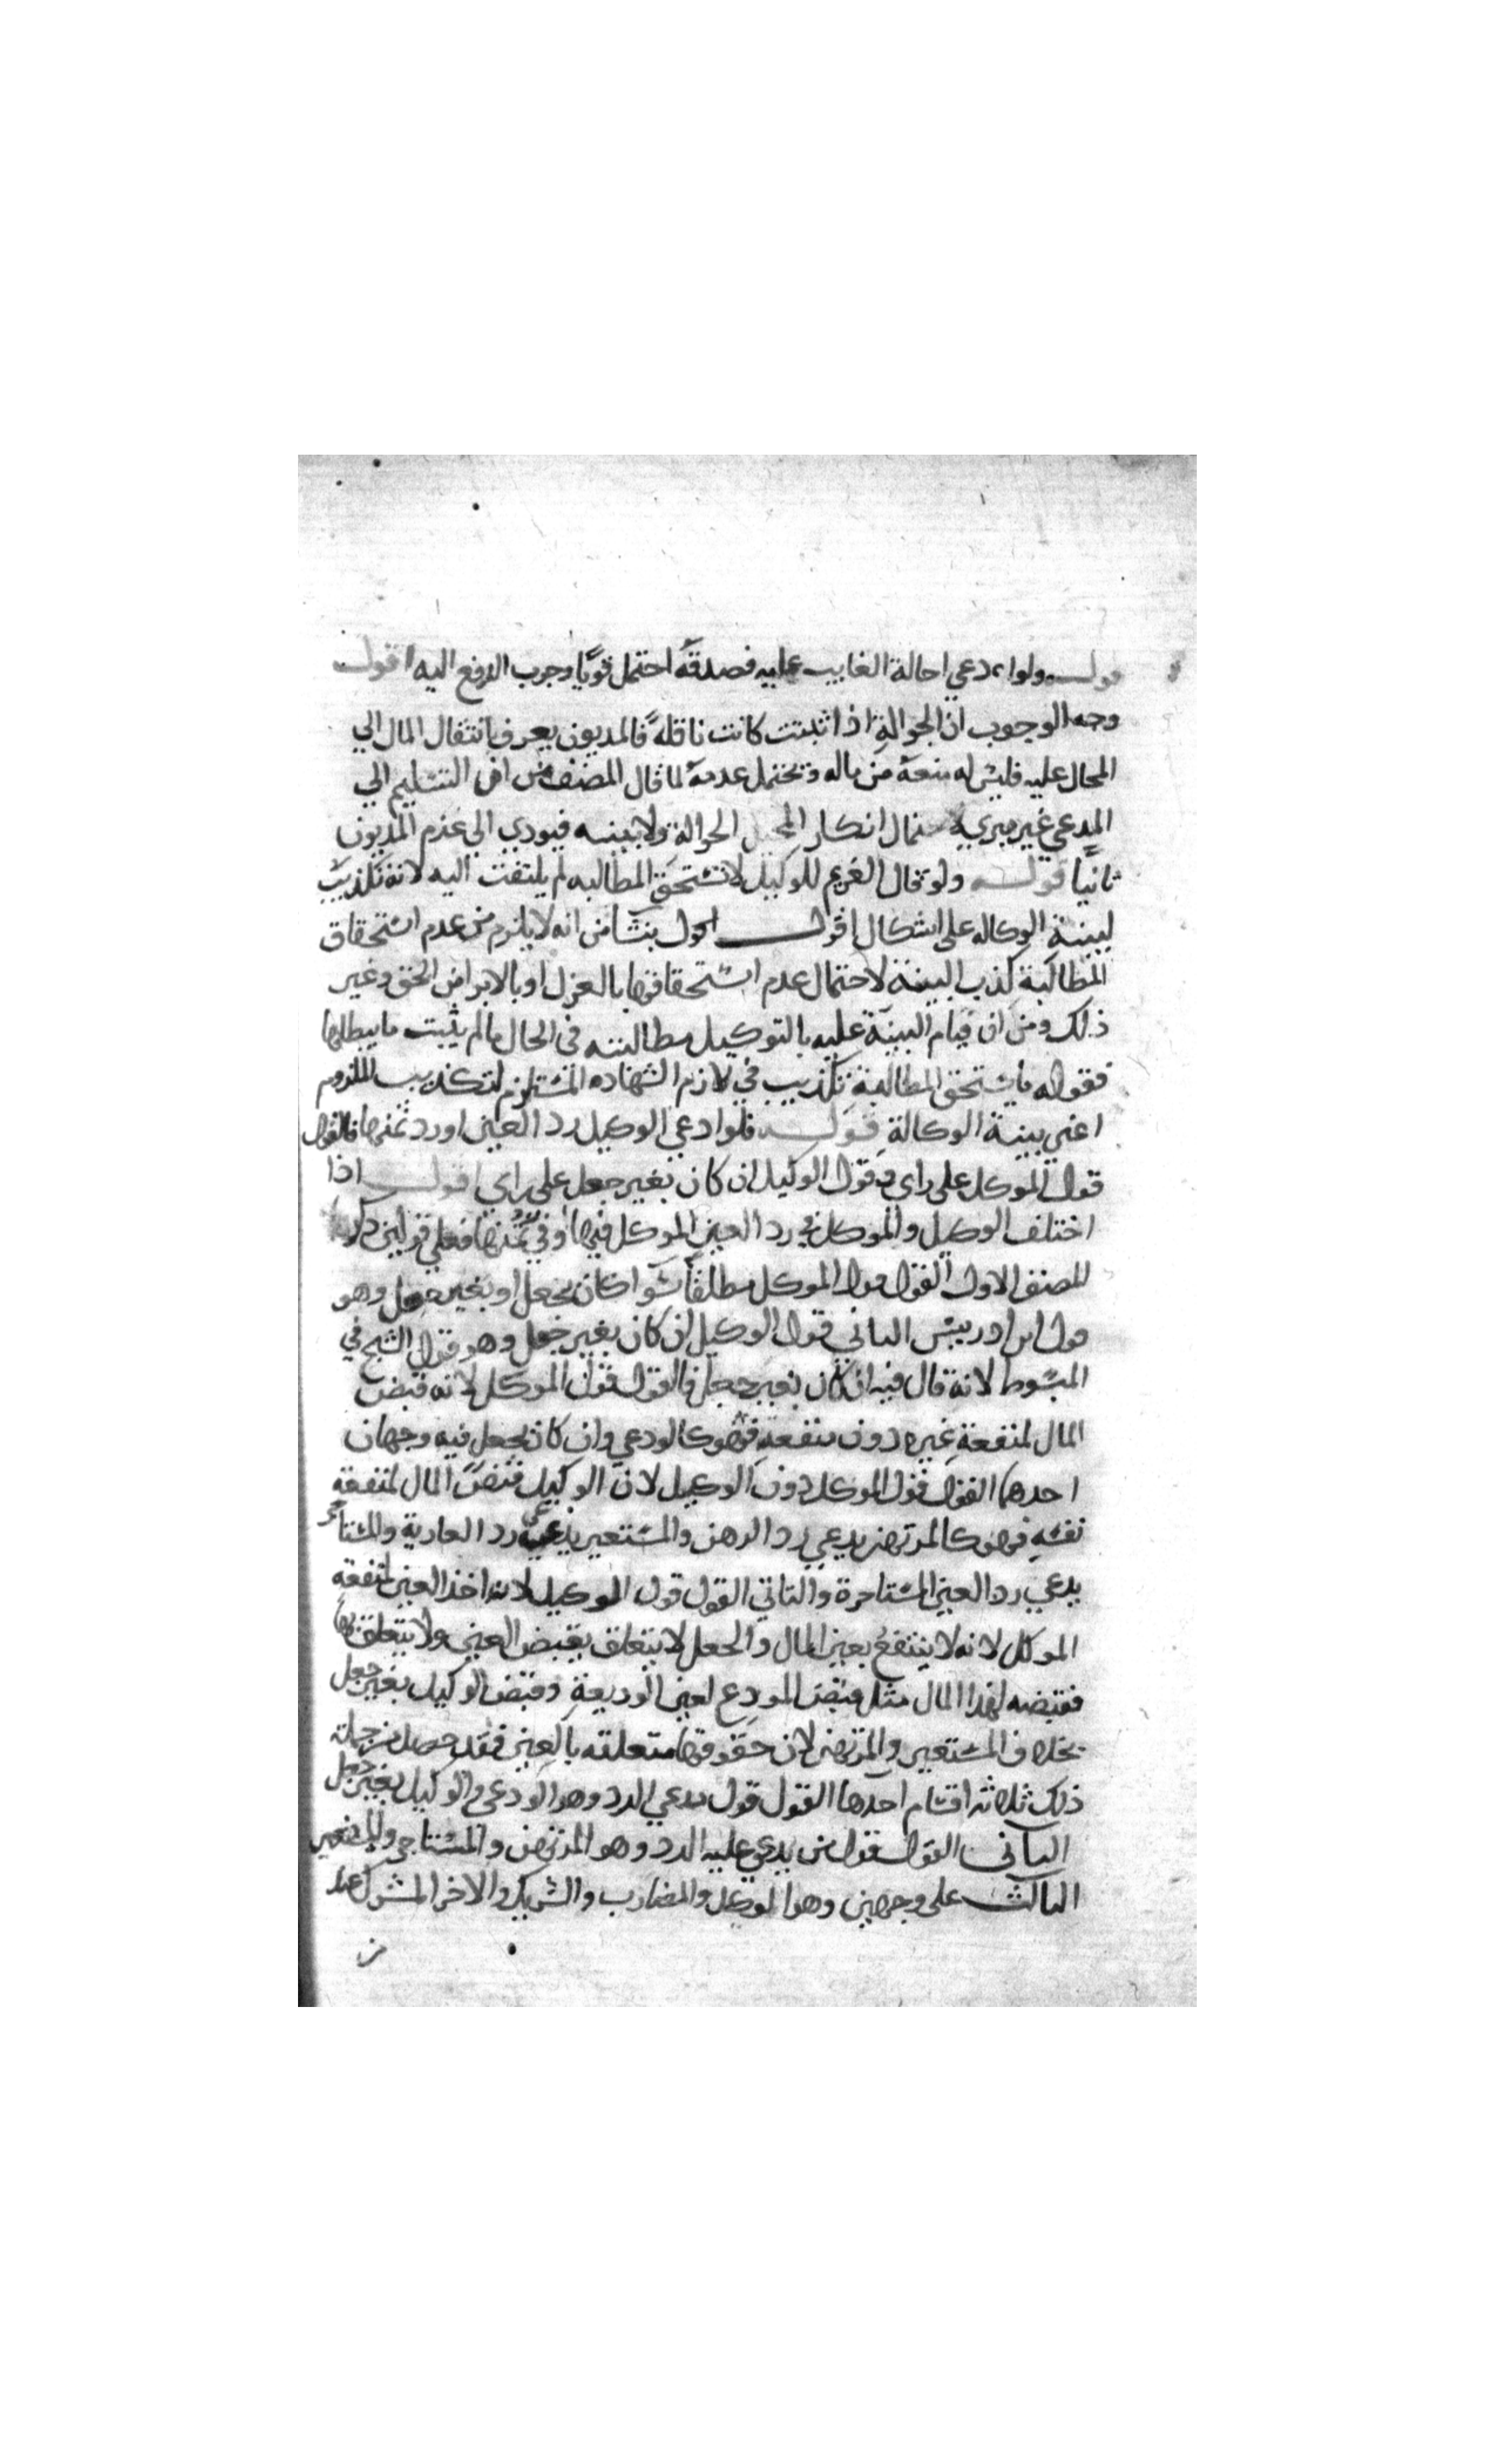 قوله ولو ادعي احالة الغايب عليه فصدقه احتمل قويا وجوب الدفع اليه اقول
وجه الوجوب ان الحوالة اذا ثبتت كانت ناقلة فالمديون يعرف بانتقال المال الي
المحال عليه فليس له منعه من ماله ويحتمل عدمه لما قال المصنف من ان التسليم الي
المدعي غير مبري لاحتمال انكار المحيل الحوالة ولا بينه فيودي الي غرم المديون
ثانيا قوله ولو قال الغريم للوكيل لا تستحق المطالبه لم يلتفت اليه لانه تكذيب
لبينة الوكاله علي اشكال اقول ينشا من انه لا يلزم من عدم استحقاق
المطالبة كذب البينه لاحتمال عدم استحقاقها بالعزل او بالابرا من الحق وغير
ذلك ومن ان قيام البينة عليه بالتوكيل مطالبته في الحال ما لم يثبت ما يبطلها
فقوله ما يستحق المطالبة تكذيب في لازم الشهاده المستلزم لتكذيب الملزوم
اعني بينة الوكالة قوله فلو ادعي الوكيل رد العين او رد ثمنها فالقول
قول الموكل علي راي وقول الوكيل ان كان بغير جعل علي راي اقول اذا
اختلف الوكيل والموكل في رد العين الموكل فيها او في ثمنها فعلي قولين ذكرهما
المصنف الاول القول قول الموكل مطلقا سوا كان بجعل او بغير جعل وهو
قول ابن ادريس الثاني قول الوكيل ان كان بغير جعل وهو قول الشيخ في
المبسوط لانه قال فيه ان كان بغير جعل فالقول قول الموكل لانه قبض
المال لمنفعة غيره دون منفعته فهو كالودعي وان كان بجعل فيه وجهان
احدهما القول قول الموكل دون الوكيل لان الوكيل قبض المال لمنفعة
نفسه فهو كالمرتهن يدعي رد الرهن والمستعير يدعي رد العارية والمستاجر
يدعي رد العين المستاجرة والثاني القول قول الوكيل لانه اخذ العين لمنفعة
الموكل لانه لا ينتفع بعين المال والجعل لا يتعلق بقبض العين ولا يتعلق بها
فقبضه لهذا المال مثل قبض المودع لعين الوديعة وقبض الوكيل بغير جعل
بخلاف المستعير والمرتهن لان حقوقها متعلقه بالعين فقد حصل من جملة
ذلك ثلاثه اقسام احدها القول قول مدعي الرد وهو الودعي والوكيل بغير جعل
الثاني القول قول من يدعي عليه الرد وهو المرتهن والمستاجر والمستعير
الثالث علي وجهين وهو الوكيل والمضارب والشريك والاخر المشترك عند